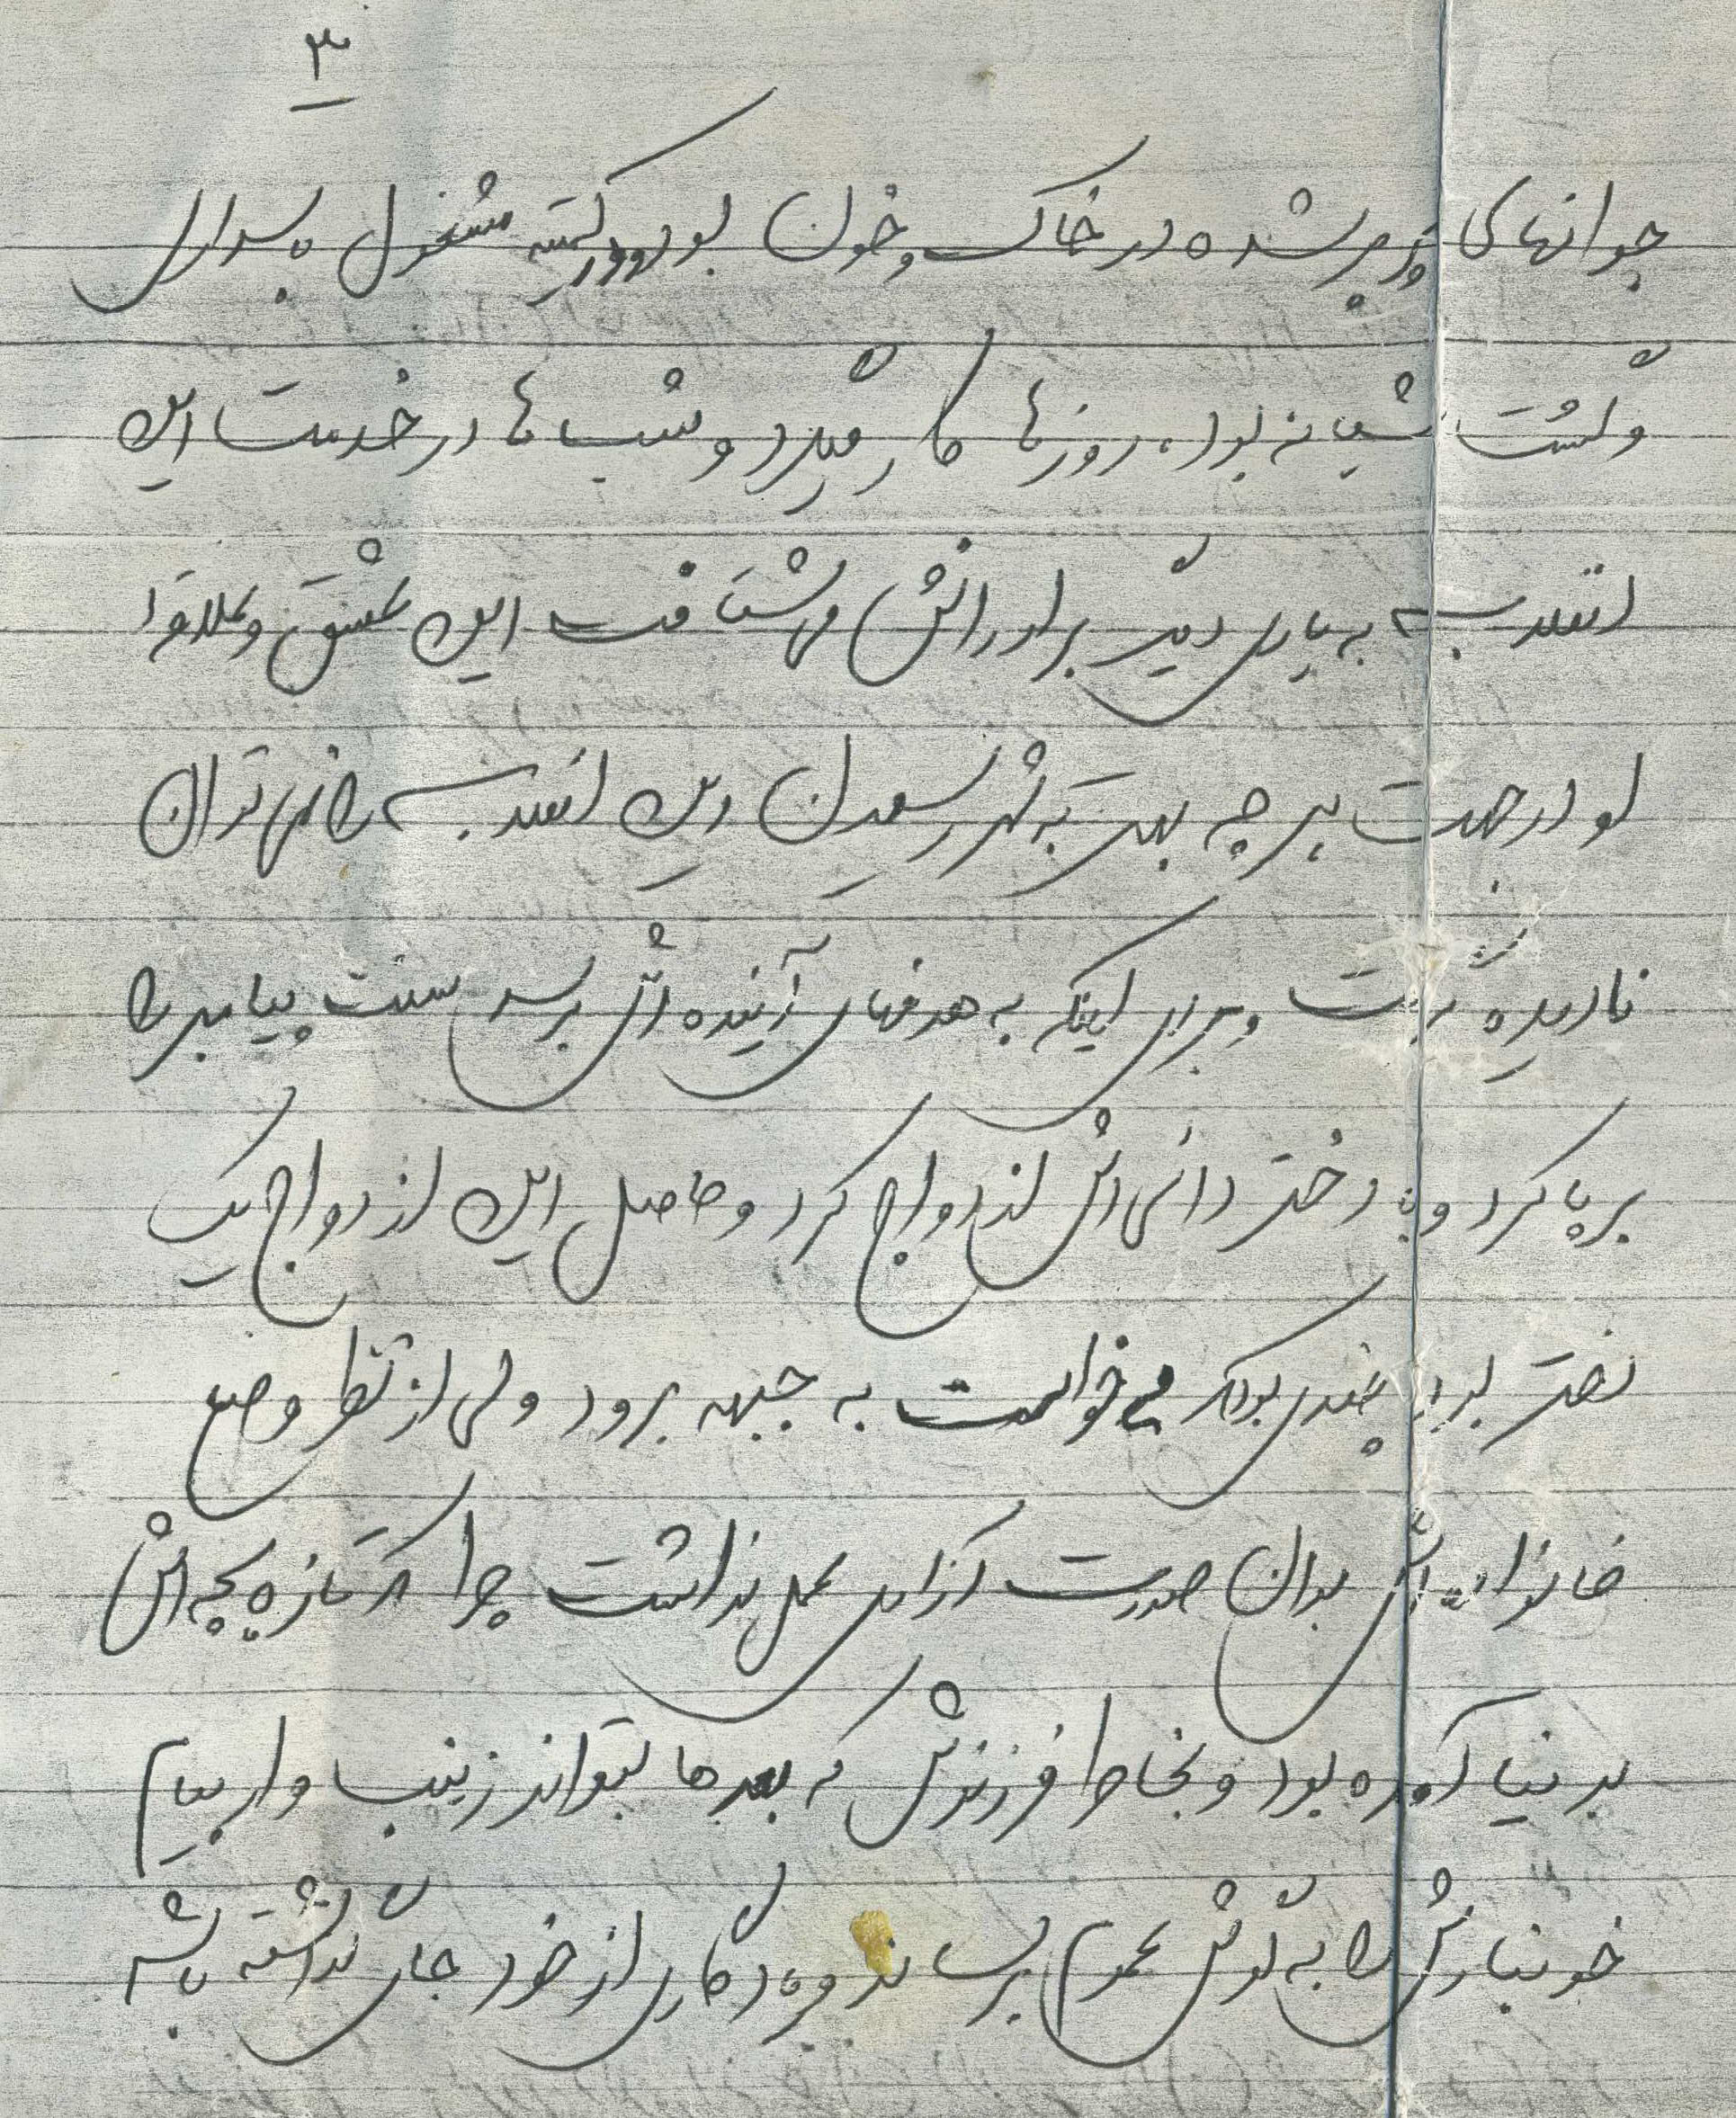 ۳
جوانهای پرپر شده در خاک و خون بود و در کمیته مشغول پاسداری
و گشت شبانه بود، روزها کار میکرد و شب ها در خدمت این
انقلاب به یاری دیگر برادرانش می شتافت این عشق و علاقه
او در جهت هر چه بهتر به ثمر رسیدن این انقلاب را نمی توان
نادیده گرفت و برای اینکه به هدفهای آینده اش برسد سنت پیامبر را
برپا کرد و با دختر دائی اش ازدواج کرد و حاصل این ازدواج یک
دختر بود چندی بود که می خواست به جبهه برود ولی از نظر وضع
خانواده اش بدان صورت آزادی عمل نداشت چرا که تازه بچه اش
بدنیا آمده بود و بخاطر فرزندش که بعدها بتواند زینب وار پیام
خونبارش را به گوش عموم برساند و یادگاری از خود بجای گذاشته باشد